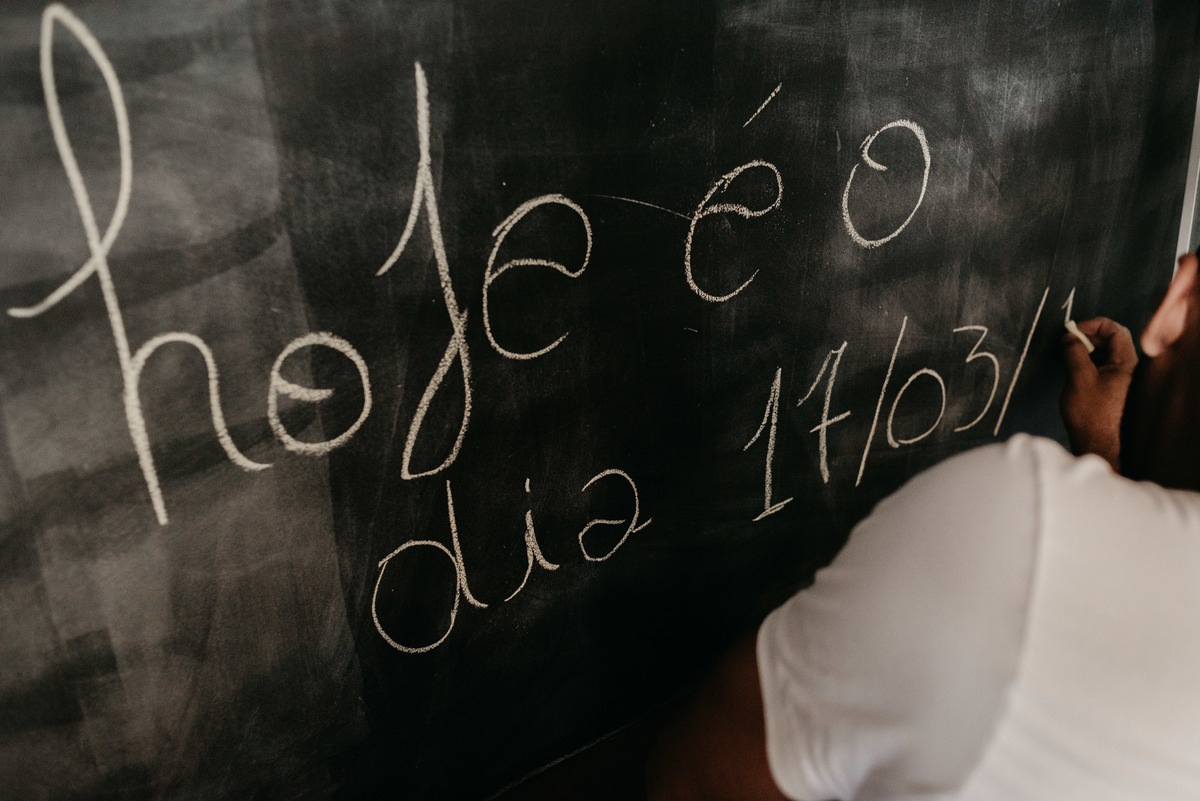 hoje é o
dia 17/03/1